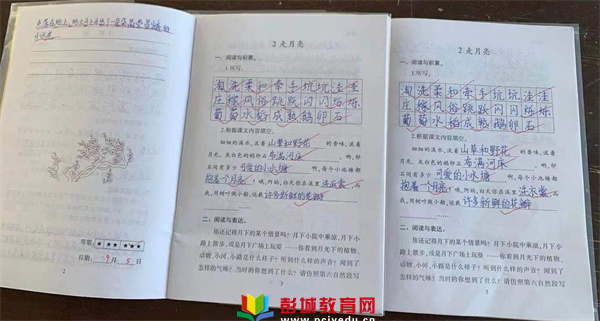 2 走月亮
一、阅读与积累。
1.听写。
淘洗柔和牵手坑坑洼洼
庄稼风俗跳跃闪闪烁烁
葡萄水稻成熟鹅卵石
2.根据课文内容填空。
细细的溪水，流着山草和野花的香味，流着
月光。灰白色的鹅卵石布满河床。啊，卵
石间有多少可爱的小水塘啊，每个小水塘都
抱着一个月亮！哦，阿妈，白天你在溪里洗衣裳，而
我，用树叶做小船，运载许多新鲜的花瓣
二、阅读与表达。
你还记得月下的某个情景吗？月下小院中乘凉，月下小
路上散步，或是月下广场上玩耍……你看到月光下的植物、
动物、小河、小路是什么样子？听到什么样的声音？闻到了
怎样的气味？当时的你想到了什么？请仿照第六自然段写
等第：★ ★★ ★★★
日期：9月5日
2
3
2 走月亮
一、阅读与积累。
1.听写。
淘洗柔和牵手坑坑洼洼
庄稼风俗跳跃闪闪烁烁
葡萄水稻成熟鹅卵石
2.根据课文内容填空。
细细的溪水，流着山草和野花的香味，流着
月光。灰白色的鹅卵石布满河床。啊，卵
石间有多少可爱的小水塘啊，每个小水塘都
抱着一个月亮！哦，阿妈，白天你在溪里洗衣裳，而
我，用树叶做小船，运载许多新鲜的花瓣
二、阅读与表达。
你还记得月下的某个情景吗？月下小院中乘凉，月下小
路上散步，或是月下广场上玩耍……你看到月光下的植物、
动物、小河、小路是什么样子？听到什么样的声音？闻到了
怎样的气味？当时的你想到了什么？请仿照第六自然段写
3
彭城教育网
www.pcjyedu.cn